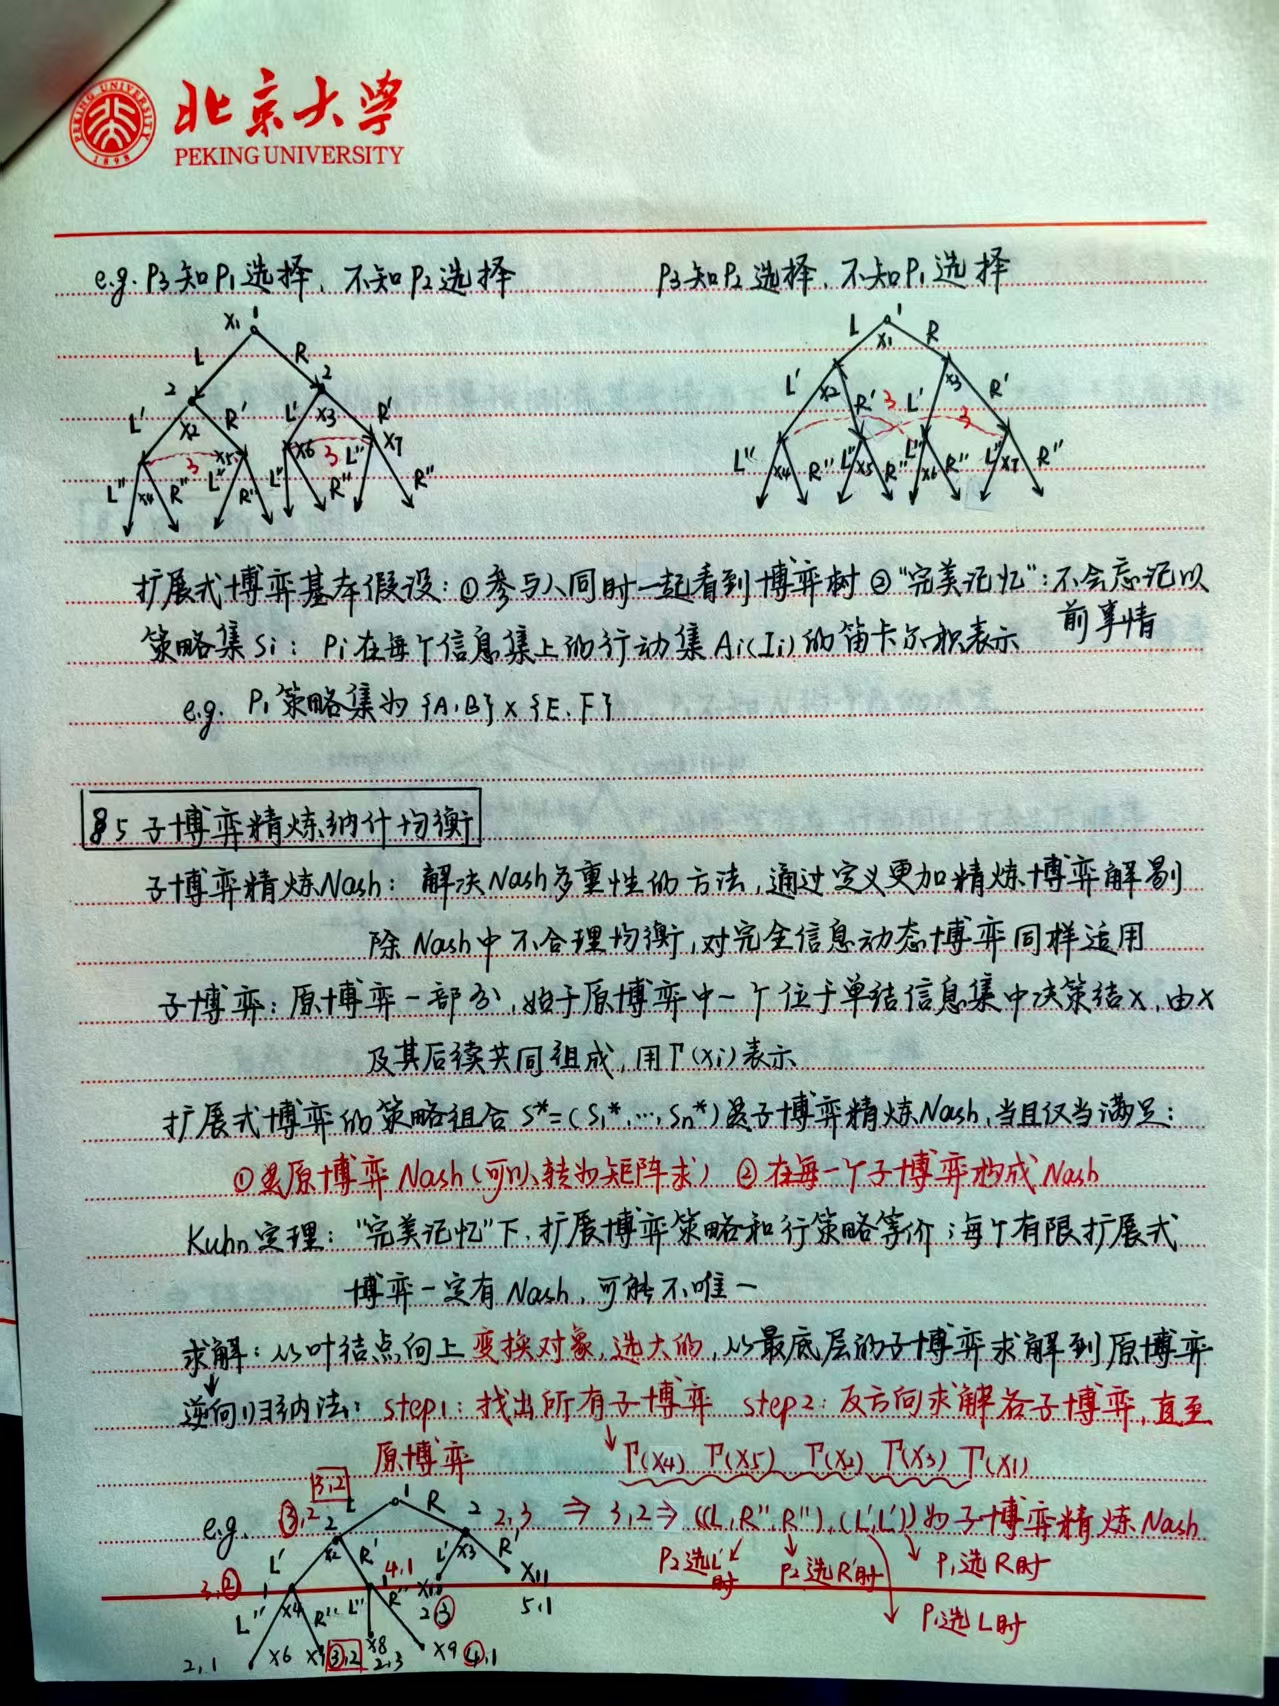 北京大学
PEKING UNIVERSITY
PEKING UNIVERSITY
1898
e.g. P3知P1选择、不知P2选择
P3知P2选择、不知P1选择
x1 1
L R
2 2
L' x2 R' L' x3 R'
3 x5 x6 3 x7
L'' x4 R'' L'' R'' L'' R'' L'' R''
1
L x1 R
L' x2 R' 3 L' x3 R' 3
L'' x4 R'' L'' x5 R'' L'' x6 R'' L'' x7 R''
扩展式博弈基本假设：①参与人同时一起看到博弈树 ②“完美记忆”：不会忘记以
前事情
策略集Si：Pi在每个信息集上的行动集Ai(Ii)的笛卡尔积表示
e.g. P1策略集为{A,B}×{E,F}
§5 子博弈精炼纳什均衡
子博弈精炼Nash：解决Nash多重性的方法，通过定义更加精炼博弈解剔
除Nash中不合理均衡，对完全信息动态博弈同样适用
子博弈：原博弈一部分，始于原博弈中一个位于单结信息集中决策结x，由x
及其后续共同组成，用Γ(xi)表示
扩展式博弈的策略组合S*=(S1*,…,Sn*)是子博弈精炼Nash，当且仅当满足：
①是原博弈Nash(可以转为矩阵求) ②在每一个子博弈构成Nash
Kuhn定理：“完美记忆”下，扩展博弈策略和行策略等价；每个有限扩展式
博弈一定有Nash，可能不唯一
求解：从叶结点向上变换对象，选大的，从最底层的子博弈求解到原博弈
逆向归纳法：step1：找出所有子博弈 step2：反方向求解各子博弈，直至
原博弈 Γ(x4) Γ(x5) Γ(x2) Γ(x3) Γ(x1)
e.g. 3,2 1
③,2 L R 2 2,3 ⇒ 3,2 ⇒ ((L,R'',R''),(L',L'))为子博弈精炼Nash
2 x2 x3
L' R' 4,1 L' R'
P2选L'时 P2选R'时 P1选R时
P1选L时
3,② 1 1 x10 x11
2③ 5,1
L'' x4 R'' L'' R''
x6 x7 x8 x9
2,1 ③,2 2,3 ④,1